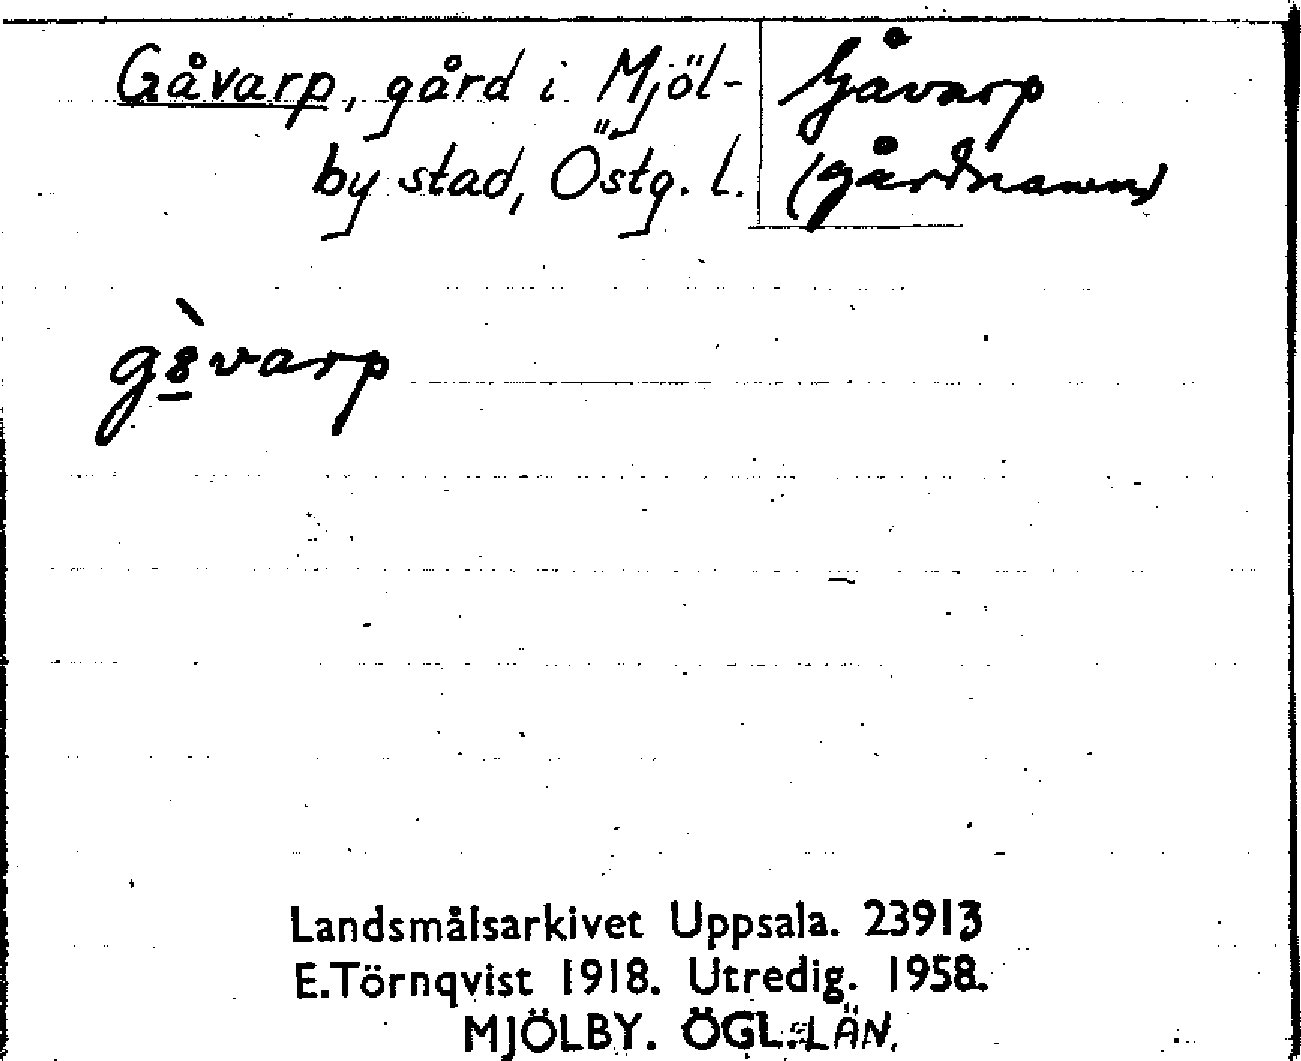 Gåvarp, gård i Mjöl-
by stad, Östg. l.
Gåvarp
(gårdnamn)
g8̲̀varp
Landsmålsarkivet Uppsala. 23913
E.Törnqvist 1918. Utredig. 1958.
MJÖLBY. ÖGL. LÄN.